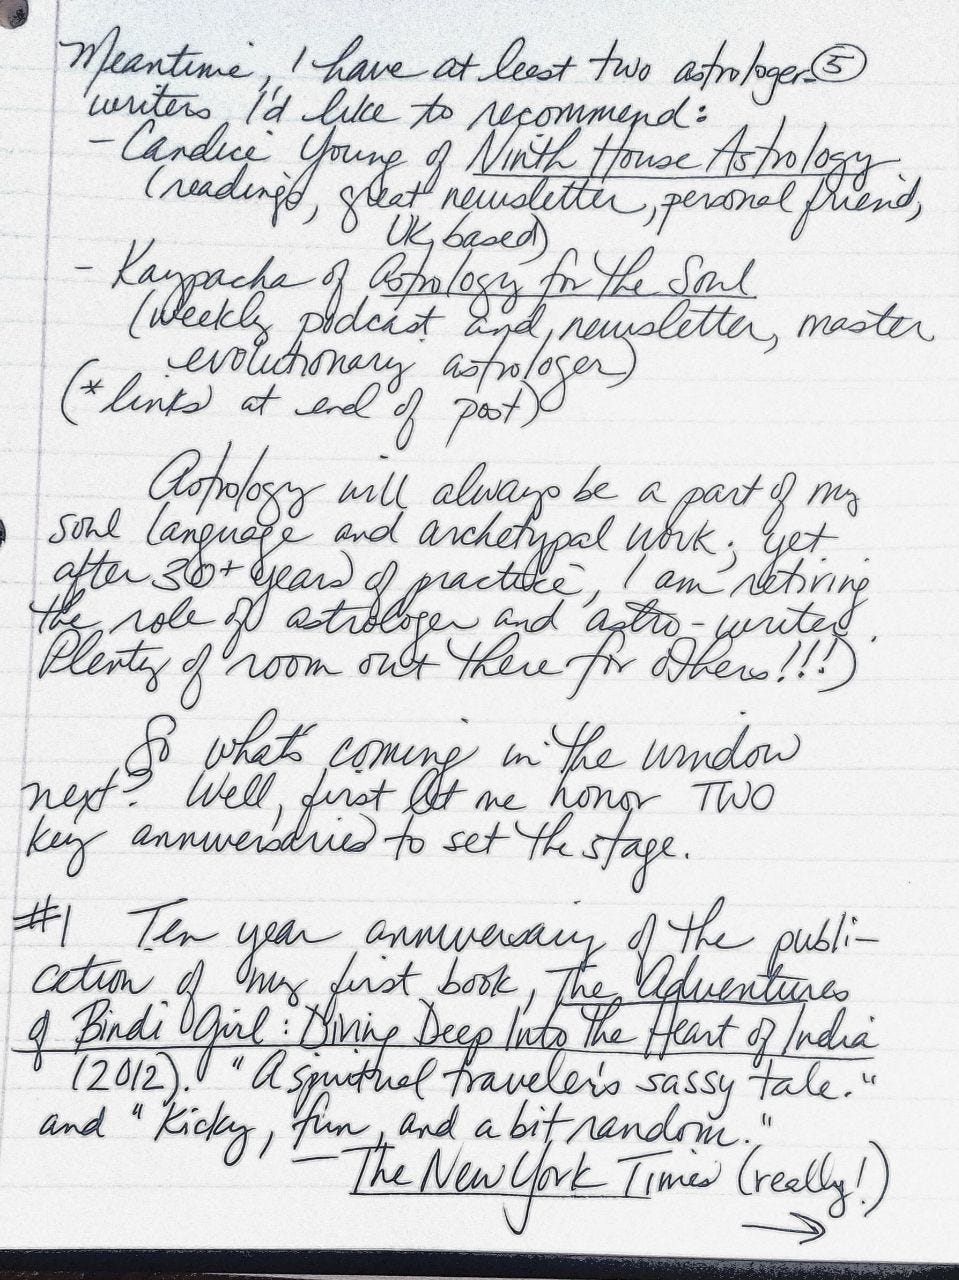 Meantime, I have at least two astrologer- ⑤
writers I'd like to recommend:
- Candice Young of Ninth House Astrology
(readings, great newsletter, personal friend,
UK based)
- Kaypacha of Astrology for the Soul
(weekly podcast and newsletter, master
evolutionary astrologer)
(*links at end of post)
Astrology will always be a part of my
soul language and archetypal work; yet
after 30+ years of practice, I am retiring
the role of astrologer and astro-writer.
Plenty of room out there for others!!!)
So what's coming in the window
next? Well, first let me honor TWO
key anniversaries to set the stage.
#1 Ten year anniversary of the publi-
cation of my first book, The Adventures
of Bindi Girl: Diving Deep Into the Heart of India
(2012). "A spiritual traveler's sassy tale."
and "Kicky, fun, and a bit random."
— The New York Times (really!)
→